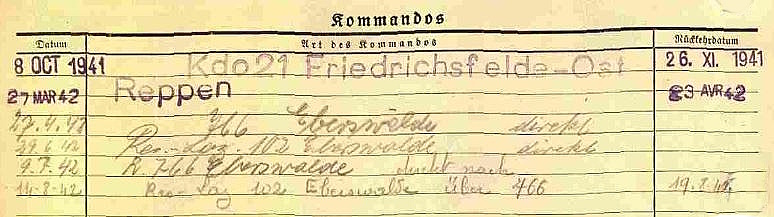 Kommandos
Datum Art des Kommandos Rückkehrdatum
8 OCT 1941 Kdo 21 Friedrichsfelde-Ost 26. XI. 1941
27 MAR 42 Reppen 23 AVR 42
27.4.42 766 Eberswalde direkt
29.6.42 Res.-Laz. 102 Eberswalde direkt
9.7.42 R. 766 Eberswalde direkt nach
14-8-42 Res-Laz 102 Eberswalde über 766 19.8.42